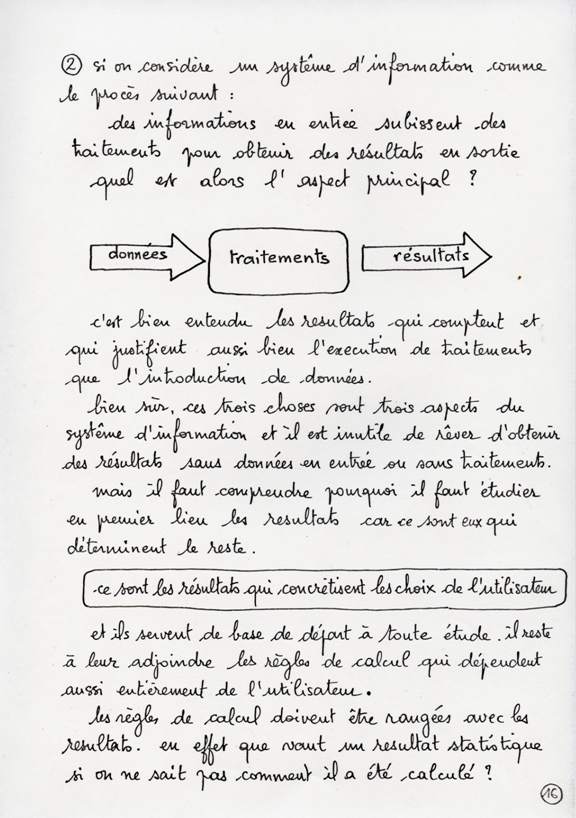 ② si on considère un système d'information comme
le procès suivant :
des informations en entrée subissent des
traitements pour obtenir des résultats en sortie
quel est alors l'aspect principal ?
données traitements résultats
c'est bien entendu les resultats qui comptent et
qui justifient aussi bien l'execution de traitements
que l'introduction de données.
bien sûr, ces trois choses sont trois aspects du
système d'information et il est inutile de rêver d'obtenir
des résultats sans données en entrée ou sans traitements.
mais il faut comprendre pourquoi il faut étudier
en premier lieu les resultats car ce sont eux qui
déterminent le reste.
ce sont les résultats qui concrétisent les choix de l'utilisateur
et ils servent de base de départ à toute étude. il reste
à leur adjoindre les règles de calcul qui dépendent
aussi entièrement de l'utilisateur.
les règles de calcul doivent être rangées avec les
resultats. en effet que vaut un resultat statistique
si on ne sait pas comment il a été calculé ?
16